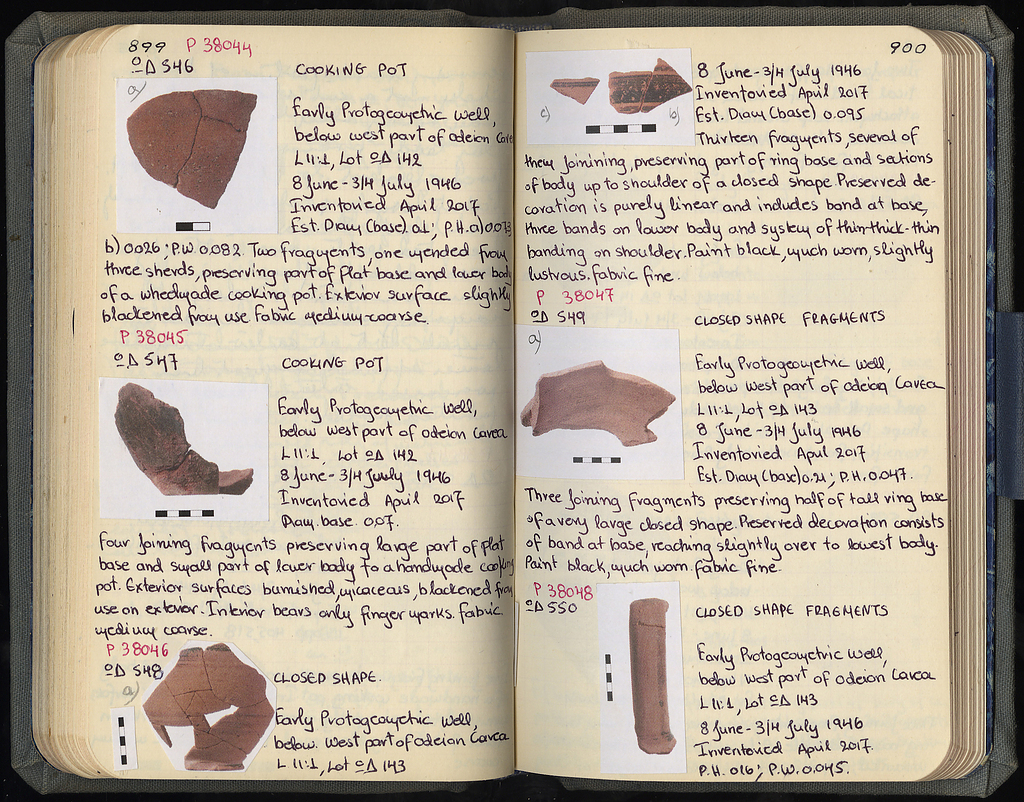 899 P 38044
ΩΔ 546
COOKING POT
a)
Early Protogeometric well,
below west part of odeion Cavea
L 11:1, Lot ΩΔ 142
8 June - 3/4 July 1946
Inventoried April 2017
Est. Diam (base) 0.1; P.H. a) 0.073
b) 0.026; P.W. 0.082. Two fragments, one mended from
three sherds, preserving part of flat base and lower body
of a wheelmade cooking pot. Exterior surface slightly
blackened from use. Fabric medium-coarse.
P 38045
ΩΔ 547
COOKING POT
Early Protogeometric well,
below west part of odeion Cavea
L 11:1, Lot ΩΔ 142
8 June - 3/4 July 1946
Inventoried April 2017
Diam. base. 0.07.
Four joining fragments preserving large part of flat
base and small part of lower body to a handmade cooking
pot. Exterior surfaces burnished, micaceous, blackened from
use on exterior. Interior bears only finger marks. Fabric
medium coarse.
P 38046
ΩΔ 548
a)
CLOSED SHAPE.
Early Protogeometric well,
below West part of odeion Cavea
L 11:1, Lot ΩΔ 143
900
c)
b)
8 June - 3/4 July 1946
Inventoried April 2017
Est. Diam (base) 0.095
Thirteen fragments, several of
them joinining, preserving part of ring base and sections
of body up to shoulder of a closed shape. Preserved de-
coration is purely linear and includes band at base,
three bands on lower body and system of thin-thick-thin
banding on shoulder. Paint black, much worn, slightly
lustrous. Fabric fine.
P 38047
ΩΔ 549
CLOSED SHAPE FRAGMENTS
a)
Early Protogeometric well,
below west part of odeion Cavea
L 11:1, Lot ΩΔ 143
8 June - 3/4 July 1946
Inventoried April 2017
Est. Diam (base) 0.21; P.H. 0.047.
Three joining fragments preserving half of tall ring base
of a very large closed shape. Preserved decoration consists
of band at base, reaching slightly over to lowest body.
Paint black, much worn. Fabric fine.
P 38048
ΩΔ 550
CLOSED SHAPE FRAGMENTS
Early Protogeometric well,
below west part of odeion Cavea
L 11:1, Lot ΩΔ 143
8 June - 3/4 July 1946
Inventoried April 2017.
P.H. 0.16; P.W. 0.045.